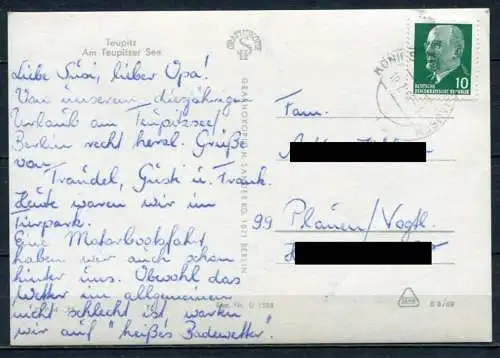 Teupitz
Am Teupitzer See
Liebe Susi, lieber Opa!
Von unserem diesjährigen
Urlaub am Teupitzsee/
Berlin recht herzl. Grüße
von
Traudel, Günt u. Frank.
Heute waren wir im
Tierpark.
Eine Motorbootsfahrt
haben wir auch schon
hinter uns. Obwohl das
Wetter im allgemeinen
nicht schlecht ist warten
wir auf "heißes Badewetter".
GRAPHOKOPIE H. SANDER KG, 1971 BERLIN
DEUTSCHE
DEMOKRATISCHE REPUBLIK
10
Fam.
99 Plauen/Vogtl.
B 6/69